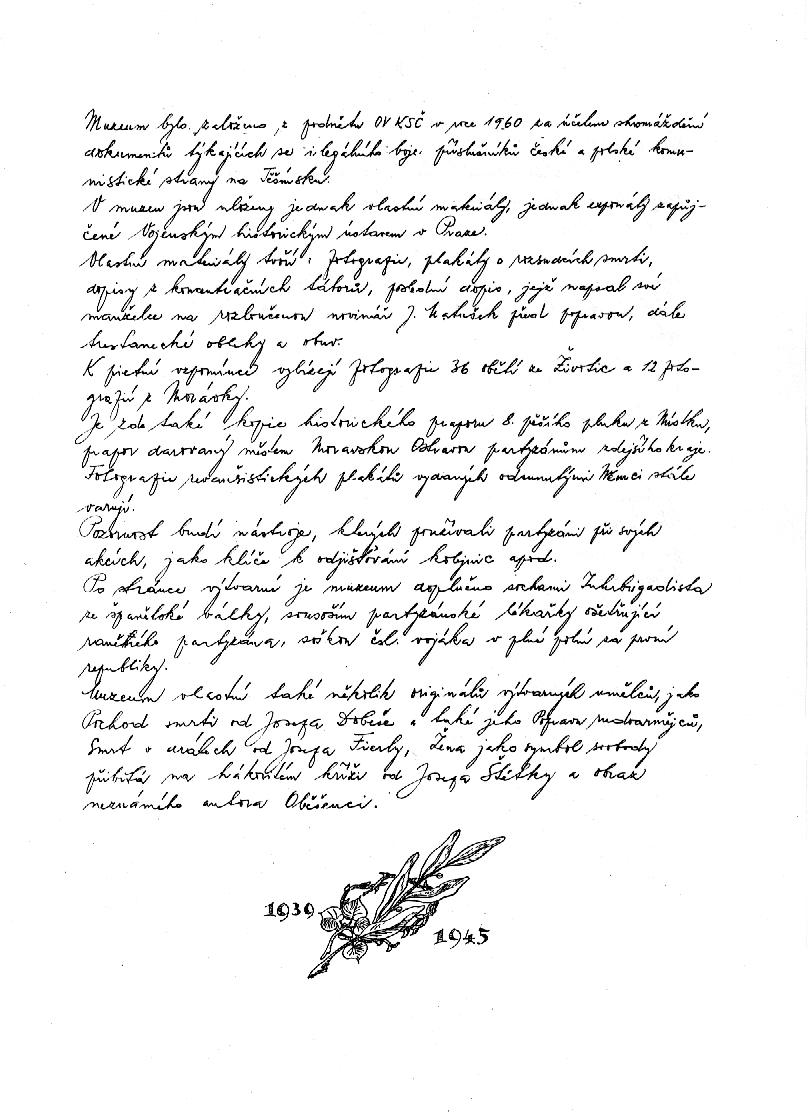 Muzeum bylo založeno z podnětu OV KSČ v roce 1960 za účelem shromáždění
dokumentů týkajících se ilegálního boje příslušníků české a polské komu-
nistické strany na Těšínsku.
V muzeu jsou uloženy jednak vlastní materiály, jednak exponáty zapůj-
čené Vojenským historickým ústavem v Praze.
Vlastní materiály tvoří: fotografie, plakáty o rozsudcích smrti,
dopisy z koncentračních táborů, poslední dopis, jejž napsal své
manželce na rozloučenou novinář J. Matušek před popravou, dále
trestanecké obleky a obuv.
K pietní vzpomínce vybízejí fotografie 36 obětí ze Životic a 12 foto-
grafií z Morávky.
Je zde také kopie historického praporu 8. pěšího pluku z Místku,
prapor darovaný městem Moravskou Ostravou partyzánům zdejšího kraje.
Fotografie revanšistických plakátů vydaných odsunutými Němci stále
varují.
Pozornost budí nástroje, kterých používali partyzáni při svých
akcích, jako klíče k odjišťování kolejnic apod.
Po stránce výtvarné je muzeum doplněno sochami Interbrigadista
ze španělské války, sousoším partyzánské lékařky ošetřující
raněného partyzána, soškou čsl. vojáka v plné polní za první
republiky.
Muzeum vlastní také několik originálů výtvarných umělců, jako
Pochod smrti od Josefa Dobeše a také jeho Poprava rudoarmějců,
Smrt v drátech od Josefa Fierly, Žena jako symbol svobody
přibitá na hákovitém kříži od Josefa Štětky a obraz
neznámého autora Oběšenci.
1939
1945